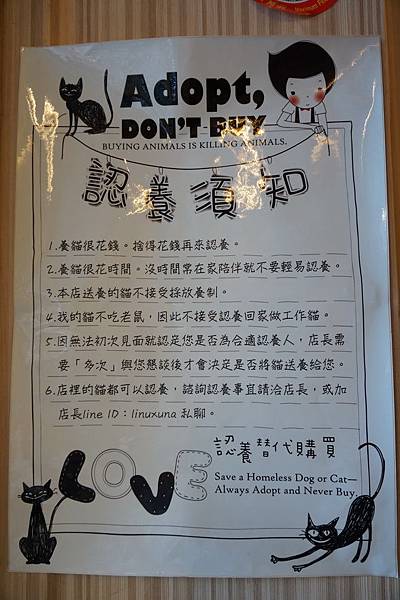 Adopt,
DON'T BUY
BUYING ANIMALS IS KILLING ANIMALS.
認養須知
1.養貓很花錢。捨得花錢再來認養。
2.養貓很花時間。沒時間常在家陪伴就不要輕易認養。
3.本店送養的貓不接受採放養制。
4.我的貓不吃老鼠,因此不接受認養回家做工作貓。
5.因無法初次見面就認定您是否為合適認養人,店長需
要「多次」與您懇談後才會決定是否將貓送養給您。
6.店裡的貓都可以認養,諮詢認養事宜請洽店長,或加
店長line ID:linuxuna 私聊。
認養替代購買
LOVE
Save a Homeless Dog or Cat—
Always Adopt and Never Buy.